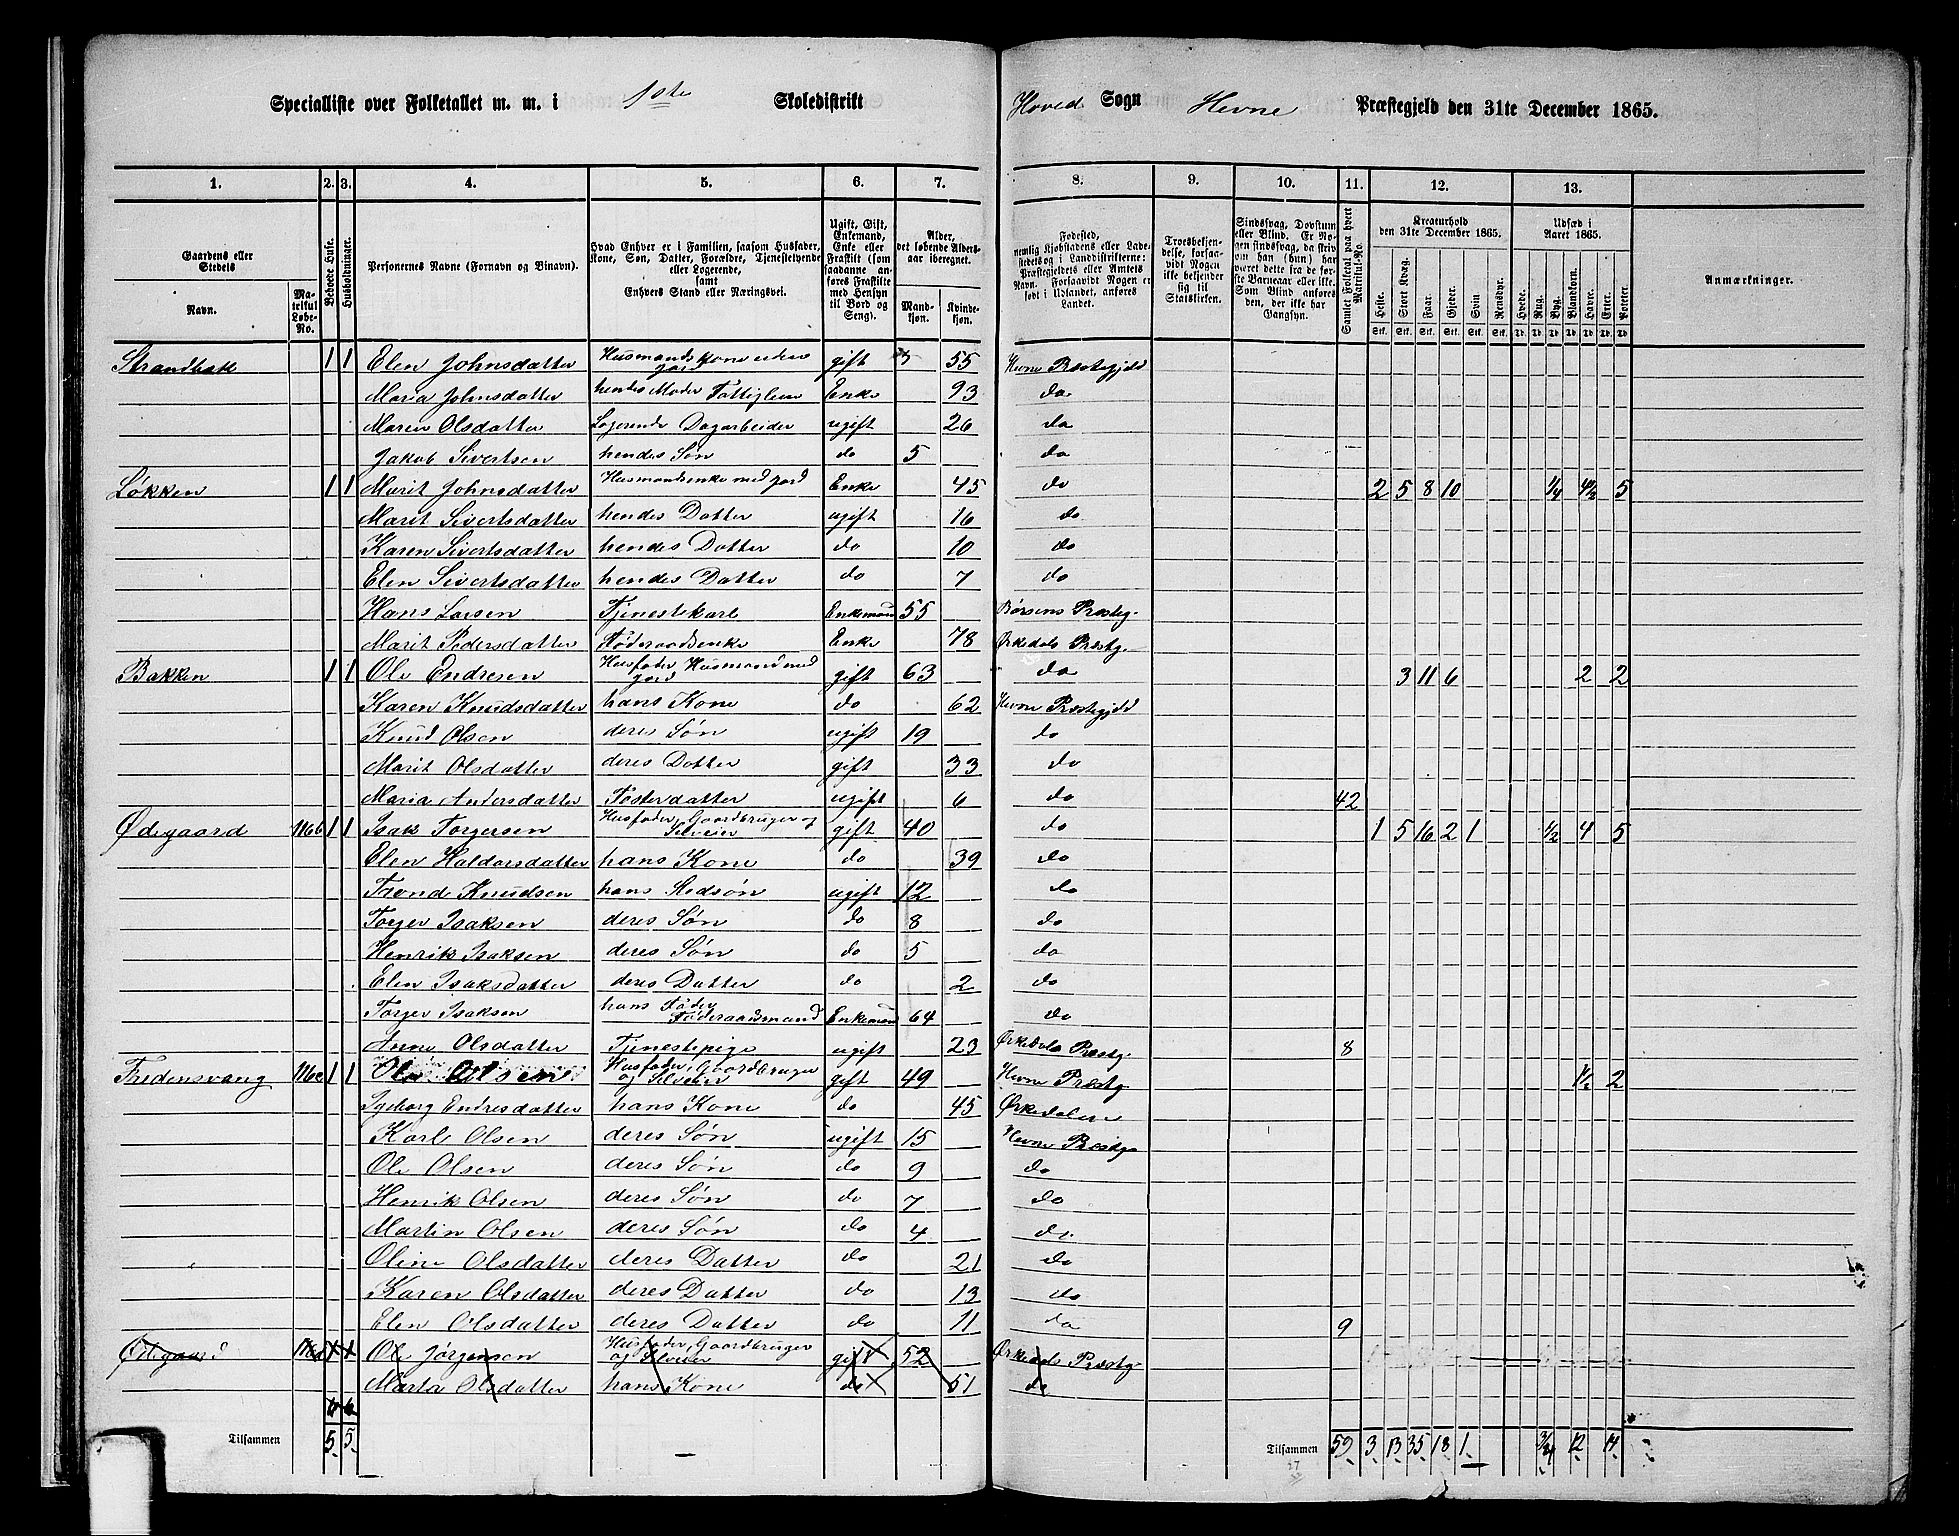 Specialliste over Folketallet m. m. i 1ste Skoledistrikt Hoved Sogn Hevne Præstegjeld den 31te December 1865.
1. 2. 3. 4. 5. 6. 7. 8. 9. 10. 11. 12. 13.
Gaardens eller Stedets
Navn.
Matrikul Løbe-No.
Beboede Huse.
Husholdninger.
Personernes Navne (Fornavn og Binavn).
Hvad Enhver er i Familien, saasom Husfader, Kone, Søn, Datter, Forældre, Tjenestetyende eller Logerende, samt Enhvers Stand eller Næringsvei.
Ugift, Gift, Enkemand, Enke eller Fraskilt (som saadanne anføres Fraskilte med Hensyn til Bord og Seng).
Alder, det løbende Alders-aar iberegnet.
Mand-kjøn.
Kvinde-kjøn.
Fødested, nemlig Kjøbstadens eller Ladestedets og i Landdistrikterne: Præstegjeldets eller Amtets Navn. Forsaavidt Nogen er født i Udlandet, anføres Landet.
Troesbekjendelse, forsaavidt Nogen ikke bekjender sig til Statskirken.
Sindssvag, Døvstum eller Blind. Er Nogen sindssvag, da skriv om han (hun) har været dette fra de første Barneaar eller ikke. Som Blind anføres den, der ikke har Gangsyn.
Samlet Folketal paa hvert Matrikul-No.
Kreaturhold den 31te December 1865.
Heste. Stort Kvæg. Faar. Gjeder. Svin. Rensdyr.
Udsæd i Aaret 1865.
Hvede. Rug. Byg. Blandkorn. Havre. Erter. Poteter.
Anmærkninger.
Strandbak 1 1 Elen Johnsdatter Husmandskone uden jord gift 55 Hevne Præstegjeld
Maria Johnsdatter hendes Moder Fattiglem Enke 93 do
Maren Olsdatter Logerende Dagarbeider ugift 26 do
Jakob Sivertsen hendes Søn do 5 do
Løkken 1 1 Marit Johnsdatter Husmandsenke med jord Enke 45 do 2 5 8 10 1/4 4 1/2 5
Marit Sivertsdatter hendes Datter ugift 16 do
Karen Sivertsdatter hendes Datter do 10 do
Elen Sivertsdatter hendes Datter do 7 do
Hans Larsen Tjenestekarl Enkemand 55 Børsens Præsteg.
Marit Pedersdatter Føderaadsenke Enke 78 Ørkedals Præstg.
Bakken 1 1 Ole Endresen Husfader Husmand med jord gift 63 do 3 11 6 2 2
Karen Knudsdatter hans Kone do 62 Hevne Præstegjeld
Knud Olsen deres Søn ugift 19 do
Marit Olsdatter deres Datter gift 33 do
Maria Andersdatter Fosterdatter ugift 6 do 42
Ødegaard 116b 1 1 Isak Torgersen Husfader, Gaardbruger og Selveier gift 40 do 1 5 16 2 1 1/2 4 5
Elen Haldorsdatter hans Kone do 39 do
Trond Knudsen hans Stedsøn ugift 12 do
Torger Isaksen deres Søn do 8 do
Henrik Isaksen deres Søn do 5 do
Elen Isaksdatter deres Datter do 2 do
Torger Isaksen hans Fader Føderaadsmand Enkemand 64 do
Anne Olsdatter Tjenestepige ugift 23 Ørkedals Præstg. 8
Fredensvang 116c 1 1 Ole Olsen Husfader, Gaardbruger og Selveier gift 49 Hevne Præstg 1 1/2 2
Ingeborg Endresdatter hans Kone do 45 Ørkedalen
Karl Olsen deres Søn ugift 15 Hevne Præstg
Ole Olsen deres Søn do 9 do
Henrik Olsen deres Søn do 7 do
Martin Olsen deres Søn do 4 do
Oline Olsdatter deres Datter do 21 do
Karen Olsdatter deres Datter do 13 do
Elen Olsdatter deres Datter do 11 do 9
Ødegaard 1 1 Ole Jørgensen Husfader, Gaardbruger og Selveier gift 52 Ørkedals Præstg
Marta Olsdatter hans Kone do 51 do
6 6
Tilsammen 5. 5. Tilsammen 59 3 13 35 18 1 3/4 12 14